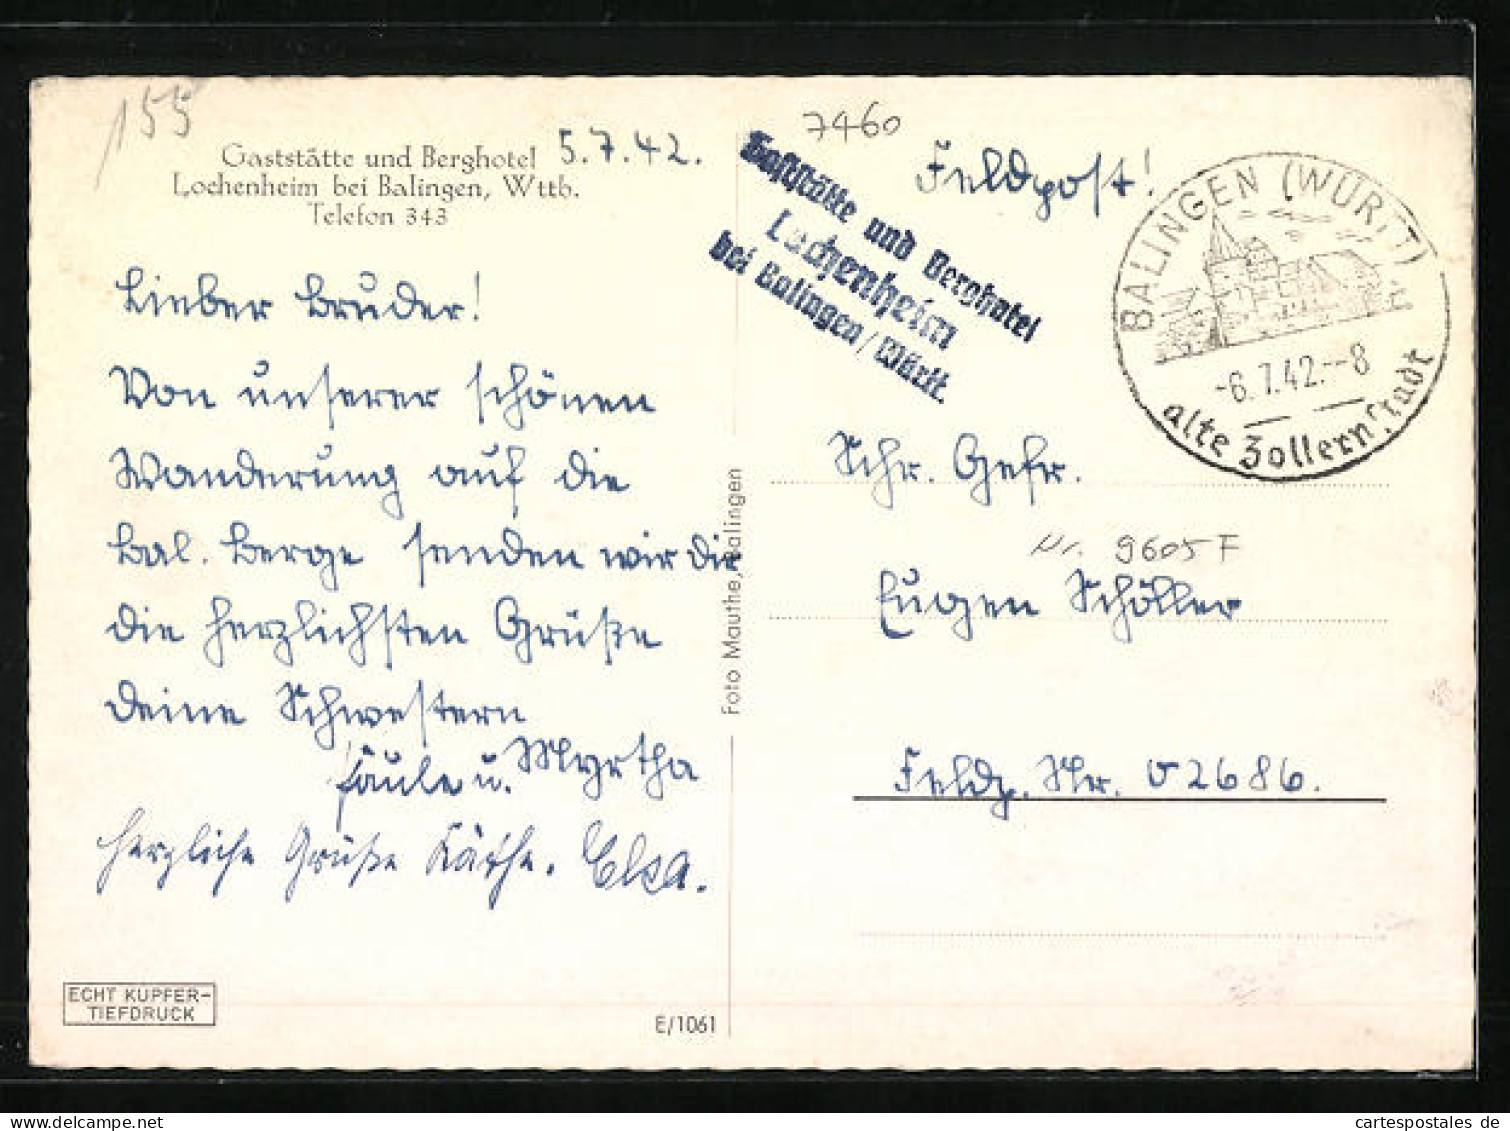 155
Gaststätte und Berghotel
Lochenheim bei Balingen, Wttb.
Telefon 343
5.7.42.
Lieber Bruder!
Von unserer schönen
Wanderung auf die
Bal. Berge senden wir dir
die herzlichsten Grüße
deine Schwestern
u. Myrtha
herzliche Grüße Käthe. Elsa.
ECHT KUPFER-
TIEFDRUCK
E/1061
Foto Mauthe, Balingen
7460
Gaststätte und Berghotel
Lochenheim
bei Balingen/Württ.
Feldpost!
BALINGEN (WÜRTT)
-6.7.42.--8
alte Zollernstadt
Gefr.
Nr. 9605 F
Eugen Schöller
Feldp. Nr. 02686.
cartespostales de